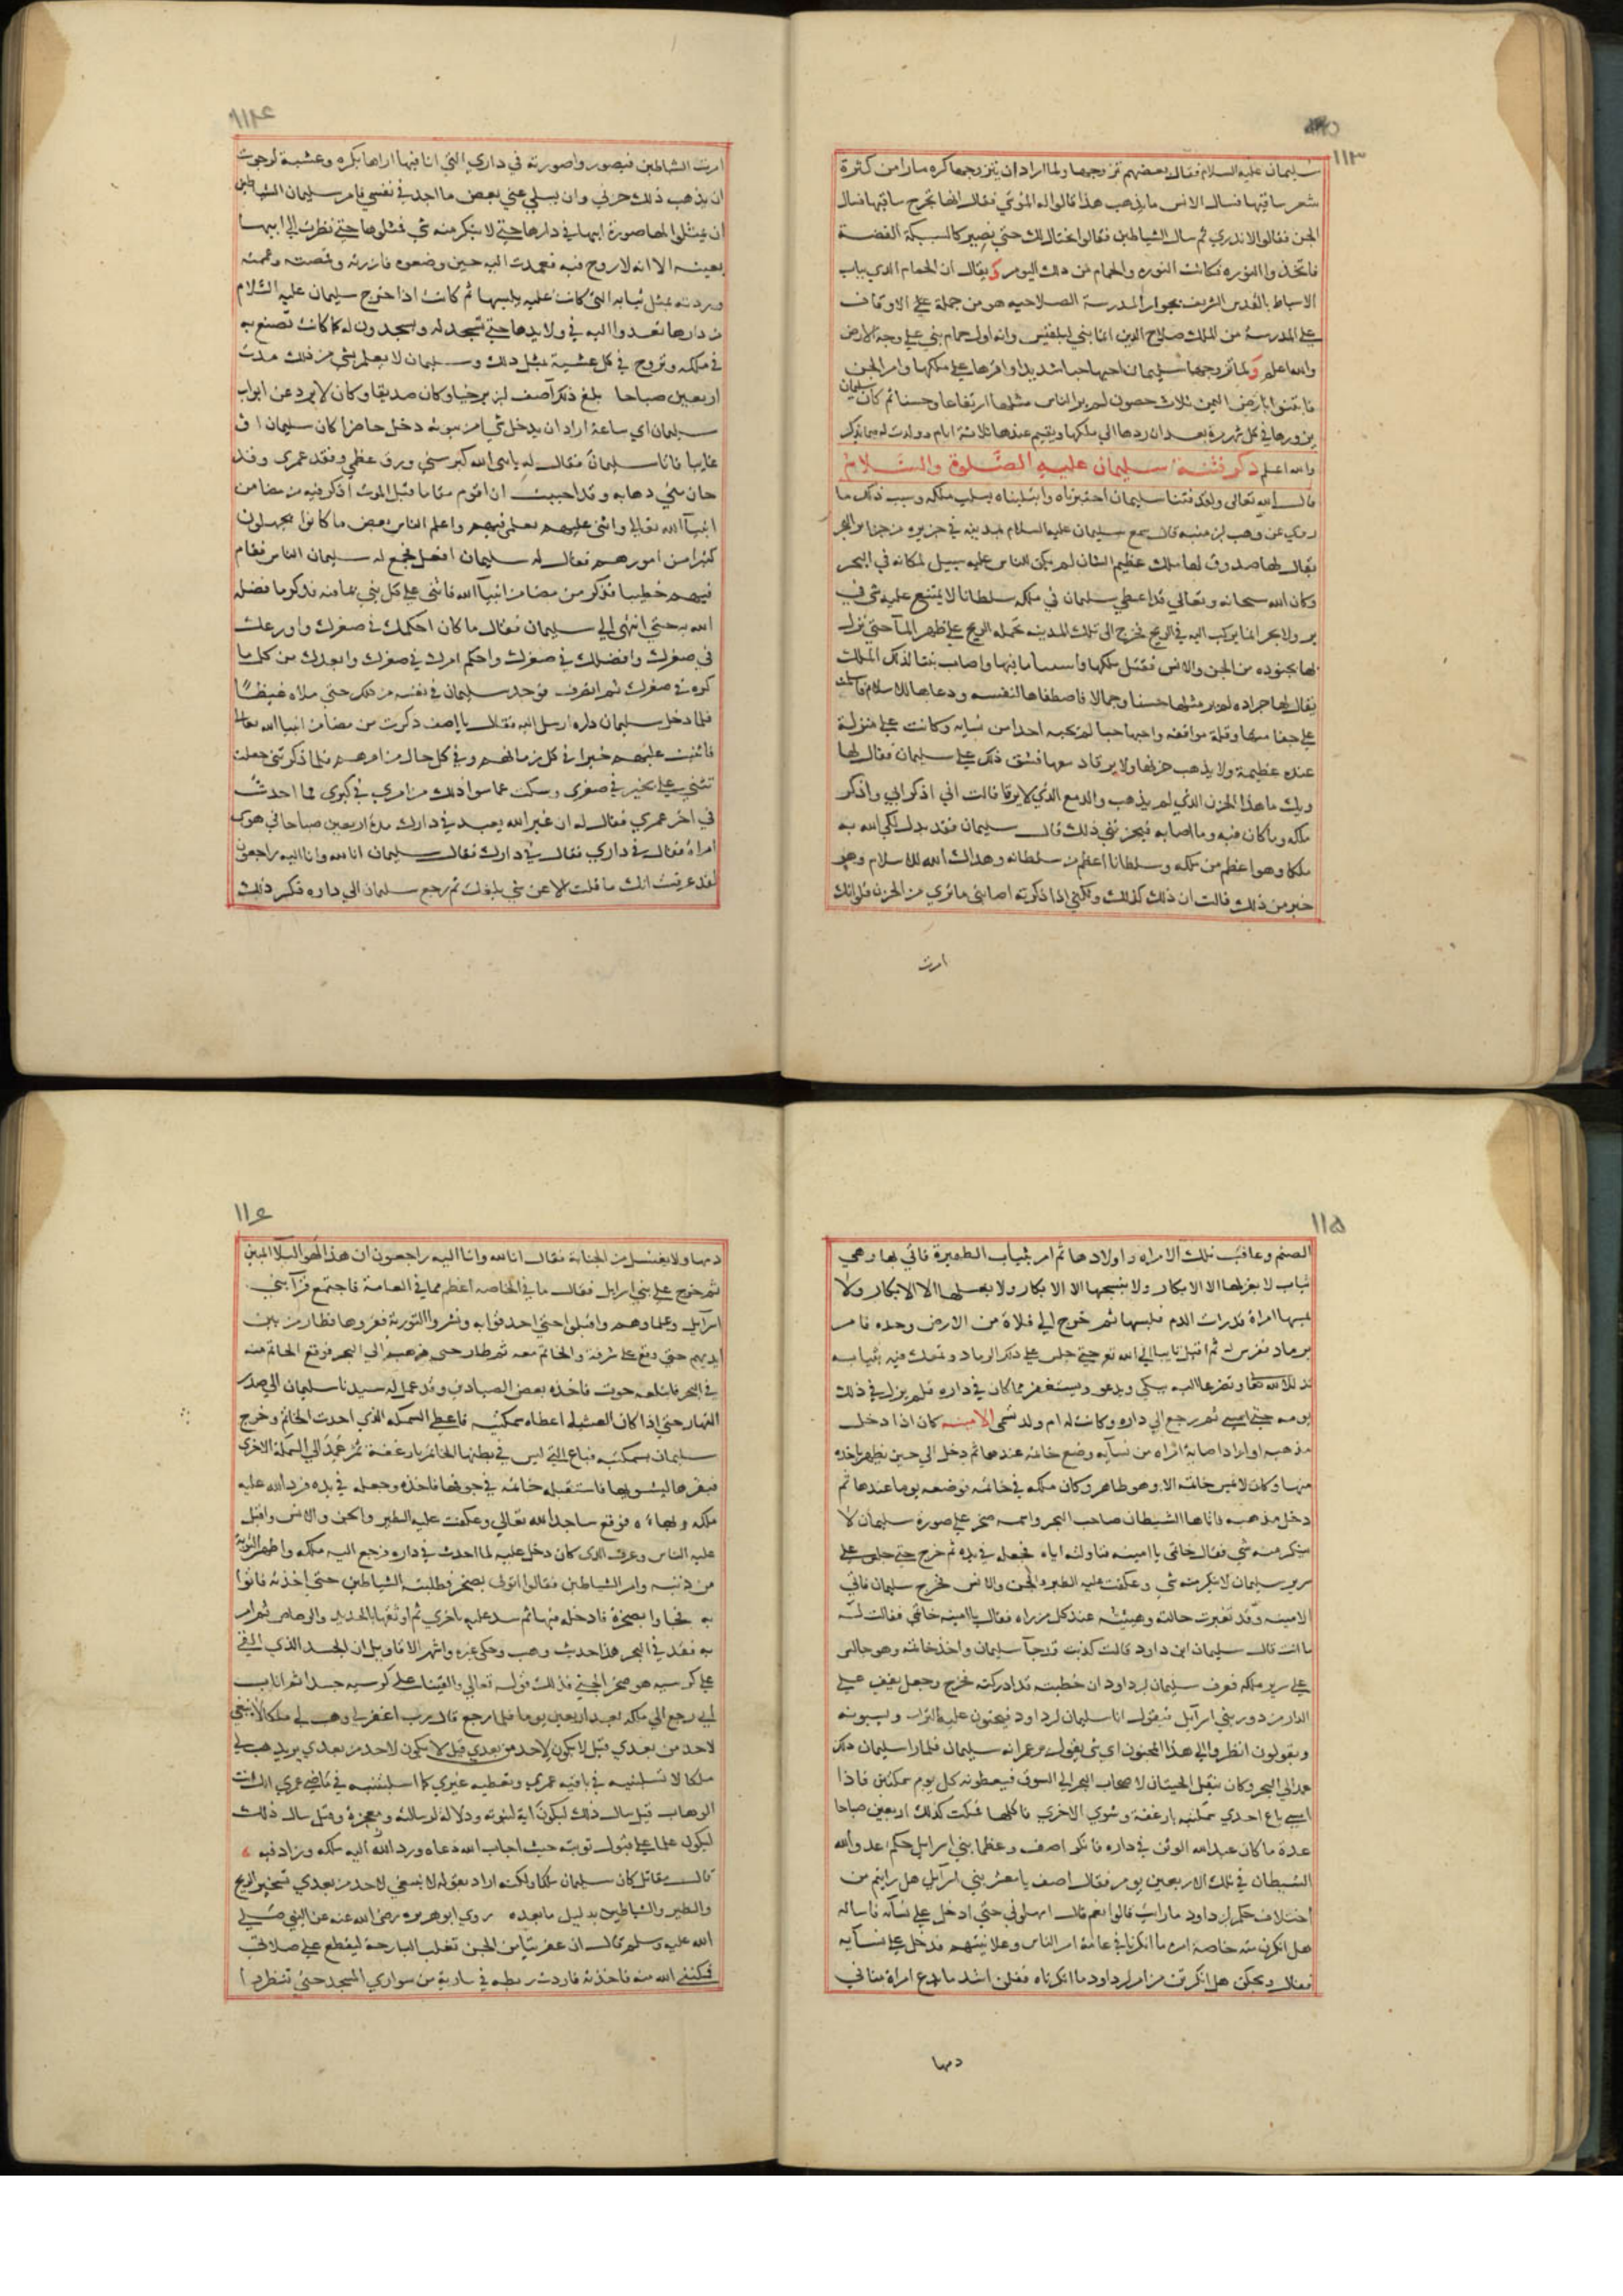 ١١٣
سليمان عليه السلام فقال بعضهم تزوجها ولما اراد ان يتزوجها كره ما راى من كثرة
شعر ساقيها فسال الانس ما يذهب هذا قالوا له الموسي فقال انها تجرح ساقيها فسال
الجن فقالوا لا ندري ثم سال الشياطين فقالوا نحتال لك حتي يصير كالسبيكة الفضة
فاتخذوا النوره فكانت النوره والحمام من ذلك اليوم ويقال ان الحمام الذي بباب
الاسباط بالقدس الشريف بجوار المدرسة الصلاحيه هو من جملة الاوقاف
علي المدرسة من الملك صلاح الدين انما بني لبلقيس وانه اول حمام بني علي وجه الارض
والله اعلم ولما تزوجها سليمان احبها حبا شديدا واقرها علي ملكها وامر الجن
فابتنوا بارض اليمن ثلاث حصون لم ير الناس مثلها ارتفاعا وحسنا ثم كان سليمان
يزورها في كل شهر مرة بعد ان ردها الي ملكها ويقيم عندها ثلاثة ايام وولدت له فيما يذكر
والله اعلم ذكر فتنة سليمان عليه الصلوة والسلام
قال الله تعالى ولقد فتنا سليمان اختبرناه وابتليناه بسلب ملكه وسبب ذلك ما
روي عن وهب بن منبه قال سمع سليمان عليه السلام بمدينه في جزيره من جزاير البحر
يقال لها صدوق لها ملك عظيم الشان لم يكن للناس عليه سبيل لمكانه في البحر
وكان الله سبحانه وتعالي قد اعطي سليمان في ملكه سلطانا لا يمتنع عليه شي في
بر ولا بحر انما يركب اليه في الريح فخرج الى تلك المدينه تحمله الريح علي ظهر المآ حتي نزل
بها بجنوده من الجن والانس فقتل ملكها وسبا ما فيها واصاب بنتا لذلك الملك
يقال لها جراده لم ير مثلها حسنا وجمالا فاصطفاها لنفسه ودعاها للاسلام فاسلمت
علي جفا منها وقلة موافقه واحبها حبا لم يحبه احدا من نسايه وكانت علي منزلة
عنده عظيمة ولا يذهب حزنها ولا يرقاد معها فشق ذلك علي سليمان فقال لها
ويلك ما هذا الحزن الذي لم يذهب والدمع الذي لا يرقا قالت اني اذكر ابي واذكر
ملكه وما كان فيه وما اصابه فيحزنني ذلك قال سليمان فقد بدلك الله به
ملكا وهو اعظم من ملكه وسلطانا اعظم من سلطانه وهداك الله للاسلام وهو
خير من ذلك قالت ان ذلك كذلك ولكني اذا ذكرته اصابني ما تري من الحزن فلو انك
امرت
١١٤
امرت الشياطين فيصوروا صورته في داري التي انا فيها اراها بكره وعشية لرجوت
ان يذهب ذلك حزني وان يسلي عني بعض ما اجد في نفسي فامر سليمان الشياطين
ان يمثلوا لها صورة ابيها في دارها حتي لا تنكر منه شي فمثلوها حتي نظرت الي ابيها
بعينه الا انه لا روح فيه فعمدت اليه حين وضعوه فازرته وقمصته وعممته
وردته بمثل ثيابه التي كانت عليه يلبسها ثم كانت اذا خرج سليمان عليه السلام
من دارها تغدوا اليه في ولايدها حتي تسجد له ويسجدون له كما كانت تصنع به
في ملكه وتروح في كل عشية بمثل ذلك وسليمان لا يعلم بشي من ذلك مدت
اربعين صباحا بلغ ذلك آصف بن برخيا وكان صديقا وكان لا يرد عن ابواب
سليمان اي ساعة اراد ان يدخل شي من بيوته دخل حاضرا كان سليمان او
غايبا فاتا سليمان فقال له يا نبي الله كبر سني ورق عظمي ونفد عمري وقد
حان مني ذهابه وقد احببت ان اقوم مقاما قبل الموت اذكر فيه من مضا من
انبيآ الله تعالي واثني عليهم بعلمي فيهم واعلم الناس بعض ما كانوا يجهلون
كثيرا من امورهم فقال له سليمان افعل فجمع له سليمان الناس فقام
فيهم خطيبا فذكر من مضا من انبيآ الله فاثني علي كل نبي بما فيه فذكر ما فضله
الله به حتي انتهى الي سليمان فقال ما كان احكمك في صغرك واورعك
في صغرك وافضلك في صغرك واحكم امرك في صغرك وابعدك من كل ما
كره في صغرك ثم انصرف فوجد سليمان في نفسه من ذلك حتي ملاه غيظا
فلما دخل سليمان داره ارسل اليه فقال يا اصف ذكرت من مضا من انبيا الله تعالي
فاثنيت عليهم خيرا في كل زمانهم وفي كل حال من امرهم فلما ذكرتني جعلت
تثني علي بخير في صغري وسكت عما سوا ذلك من امري في كبري فما احدثت
في اخر عمري فقال له ان غير الله يعبد في دارك مدة اربعين صباحا في هوي
امراة فقال في داري فقال في دارك فقال سليمان انا لله وانا اليه راجعون
لقد عرفت انك ما قلت الا عن شي بلغك ثم رجع سليمان الي داره فكسر ذلك
١١٥
الصنم وعاقب تلك الامراه واولادها ثم امر بثياب الطهيرة فاتي بها وهي
ثياب لا يغزلها الا الابكار ولا ينسجها الا الابكار ولا يغسلها الا الابكار ولا
يمسها امراة قد رات الدم فلبسها ثم خرج الي فلاة من الارض وحده فامر
برماد ففرش له ثم اقبل تايبا الي الله تع حتي جلس علي ذلك الرماد وتمعك فيه بثيابه
تذللا لله تعالى وتضرعا اليه يبكي ويدعو ويستغفر مما كان في داره فلم يزل في ذلك
يومه حتي امسي ثم رجع الي داره وكانت له ام ولد تسمى الامينه كان اذا دخل
مذهبه او اراد اصابة امراه من نسآيه وضع خاتمه عندها ثم دخل الي حين يطهر ياخذه
منها وكان لا يمس خاتمه الا وهو طاهر وكان ملكه في خاتمه فوضعه يوما عندها ثم
دخل مذهبه فاتاها الشيطان صاحب البحر واسمه صخر علي صورة سليمان لا
ينكر منه شي فقال خاتمي يا امينه فناولته اياه فجعله في يده ثم خرج حتي جلس علي
سرير سليمان لا ينكر منه شي وعكفت عليه الطير والجن والانس فخرج سليمان فاتي
الامينه وقد تغيرت حالته وهيئته عند كل من راه فقال يا امينه خاتمي فقالت له
ما انت قال سليمان ابن داود قالت كذبت قد جآ سليمان واخذ خاتمه وهو جالس
علي سرير ملكه فعرف سليمان بن داود ان خطيته قد ادركته فخرج وجعل يقف علي
الدار من دور بني اسرآيل فيقول انا سليمان بن داود فيحثون عليه التراب ويسبونه
ويقولون انظروا الي هذا المجنون اي شي يقول يزعم انه سليمان فلما را سليمان ذلك
عمد الي البحر وكان ينقل الحيتان لاصحاب البحر الي السوق فيعطونه كل يوم سمكتين فاذا
امسي باع احدي سمكتيه بارغفة وشوي الاخري فاكلها فمكث كذلك اربعين صباحا
عدة ما كان عبد الله الوثن في داره فانكر اصف وعظما بني اسرايل حكم عدو الله
الشيطان في تلك الاربعين يوم فقال اصف يا معشر بني اسرآيل هل رايتم من
اختلاف حكم ابن داود ما رايت قالوا نعم قال امهلوني حتي ادخل علي نسآئه فاساله
هل انكرن منه خاصة امره ما انكرنا في عامة امر الناس وعلانيتهم فدخل علي نسآيه
فقال ويحكن هل انكرتن من امر بن داود ما انكرناه فقلن اشد ما يدع امراة منا في
دمها
١١٦
دمها ولا يغتسل من الجنابة فقال انا لله وانا اليه راجعون ان هذا لهو البلآ المبين
ثم خرج علي بني اسرايل فقال ما في الخاصه اعظم مما في العامة فاجتمع قرآ بني
اسرآيل وعلماوهم واقبلوا حتي احدقوا به ونشروا التورية فقروها فطار من بين
ايديهم حتي وقع علي شرفة والخاتم معه ثم طار حتى ذهب الي البحر فوقع الخاتم منه
في البحر فابتلعه حوت فاخذه بعض الصيادين وقد عمل له سيدنا سليمان الي صدر
النهار حتي اذا كان العشيه اعطاه سمكتيه فاعطي السمكه الذي اخذت الخاتم وخرج
سليمان بسمكتيه فباع التي ليس في بطنها الخاتم بارغفة ثم عمد الي السمكة الاخري
فبقرها ليشويها فاستقبله خاتمه في جوفها فاخذه وجعله في يده فرد الله عليه
ملكه وبهاءه فوقع ساجدا لله تعالي وعكفت عليه الطير والجن والانس واقبل
عليه الناس وعرف الذي كان دخل عليه لما احدث في داره فرجع اليه ملكه واظهر التوبة
من ذنبه وامر الشياطين فقالوا اتوني بصخر فطلبته الشياطين حتى اخذته فاتوا
به فجاوا بصخرة فادخله فيها ثم سد عليه باخري ثم اوثقها بالحديد والرصاص ثم امر
به فقذف في البحر هذا حديث وهب وحكي غيره واشهر الاقاويل ان الجسد الذي القي
علي كرسيه هو صخر الجني فذلك قوله تعالي والقينا علي كرسيه جسدا ثم اناب
اي رجع الي ملكه بعد اربعين يوما فلما رجع قال رب اغفر لي وهب لي ملكا لا ينبغي
لاحد من بعدي قيل لا يكون لاحد من بعدي قيل لا يكون لاحد من بعدي يريد هب لي
ملكا لا تسلبنيه في باقيه عمري وتعطيه غيري كما استلبتنيه في ماضي عمري انك انت
الوهاب قيل سال ذلك ليكون اية لنبوته ودلالة لرسالته ومعجزة وقيل سال ذلك
ليكون علما علي قبول توبته حيث اجاب الله دعاه ورد الله اليه ملكه وزاد فيه
قال مقاتل كان سليمان ملكا ولكنه اراد بقوله لا ينبغي لاحد من بعدي تسخير الريح
والطير والشياطين بدليل ما بعده روي ابو هريره رضي الله عنه عن النبي صلي
الله عليه وسلم قال ان عفريتا من الجن تغلب البارحة ليقطع علي صلاتي
فمكنني الله منه فاخذته فاردت ربطه في سارية من سواري المسجد حتي تنظروا